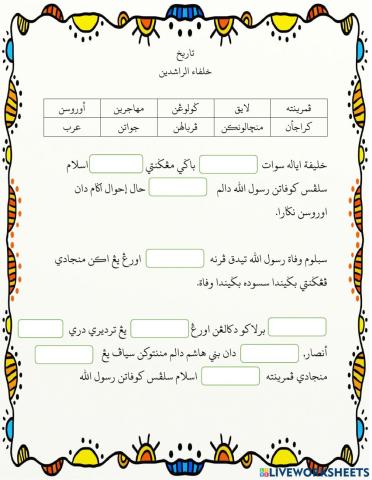 تاريخ
خلفاء الراشدين
ڤمرينته لايق ݢولوڠن مهاجرين أوروسن
كراجأن منچالونكن ڤرباهن جواتن عرب
خليفة اياله سوات باݢي مڠݢنتي اسلام
سلڤس كوفاتن رسول الله دالم حال إحوال اݢام دان
اوروسن نݢارا.
سبلوم وفاة رسول الله تيدق ڤرنه اورڠ يڠ اكن منجادي
ڤڠݢنتي بݢيندا سسوده بݢيندا وفاة.
برلاكو دكالڠن اورڠ يڠ ترديري دري
أنصار, دان بني هاشم دالم مننتوكن سياڤ يڠ
منجادي ڤمرينته اسلام سلڤس كوفاتن رسول الله
LIVEWORKSHEETS